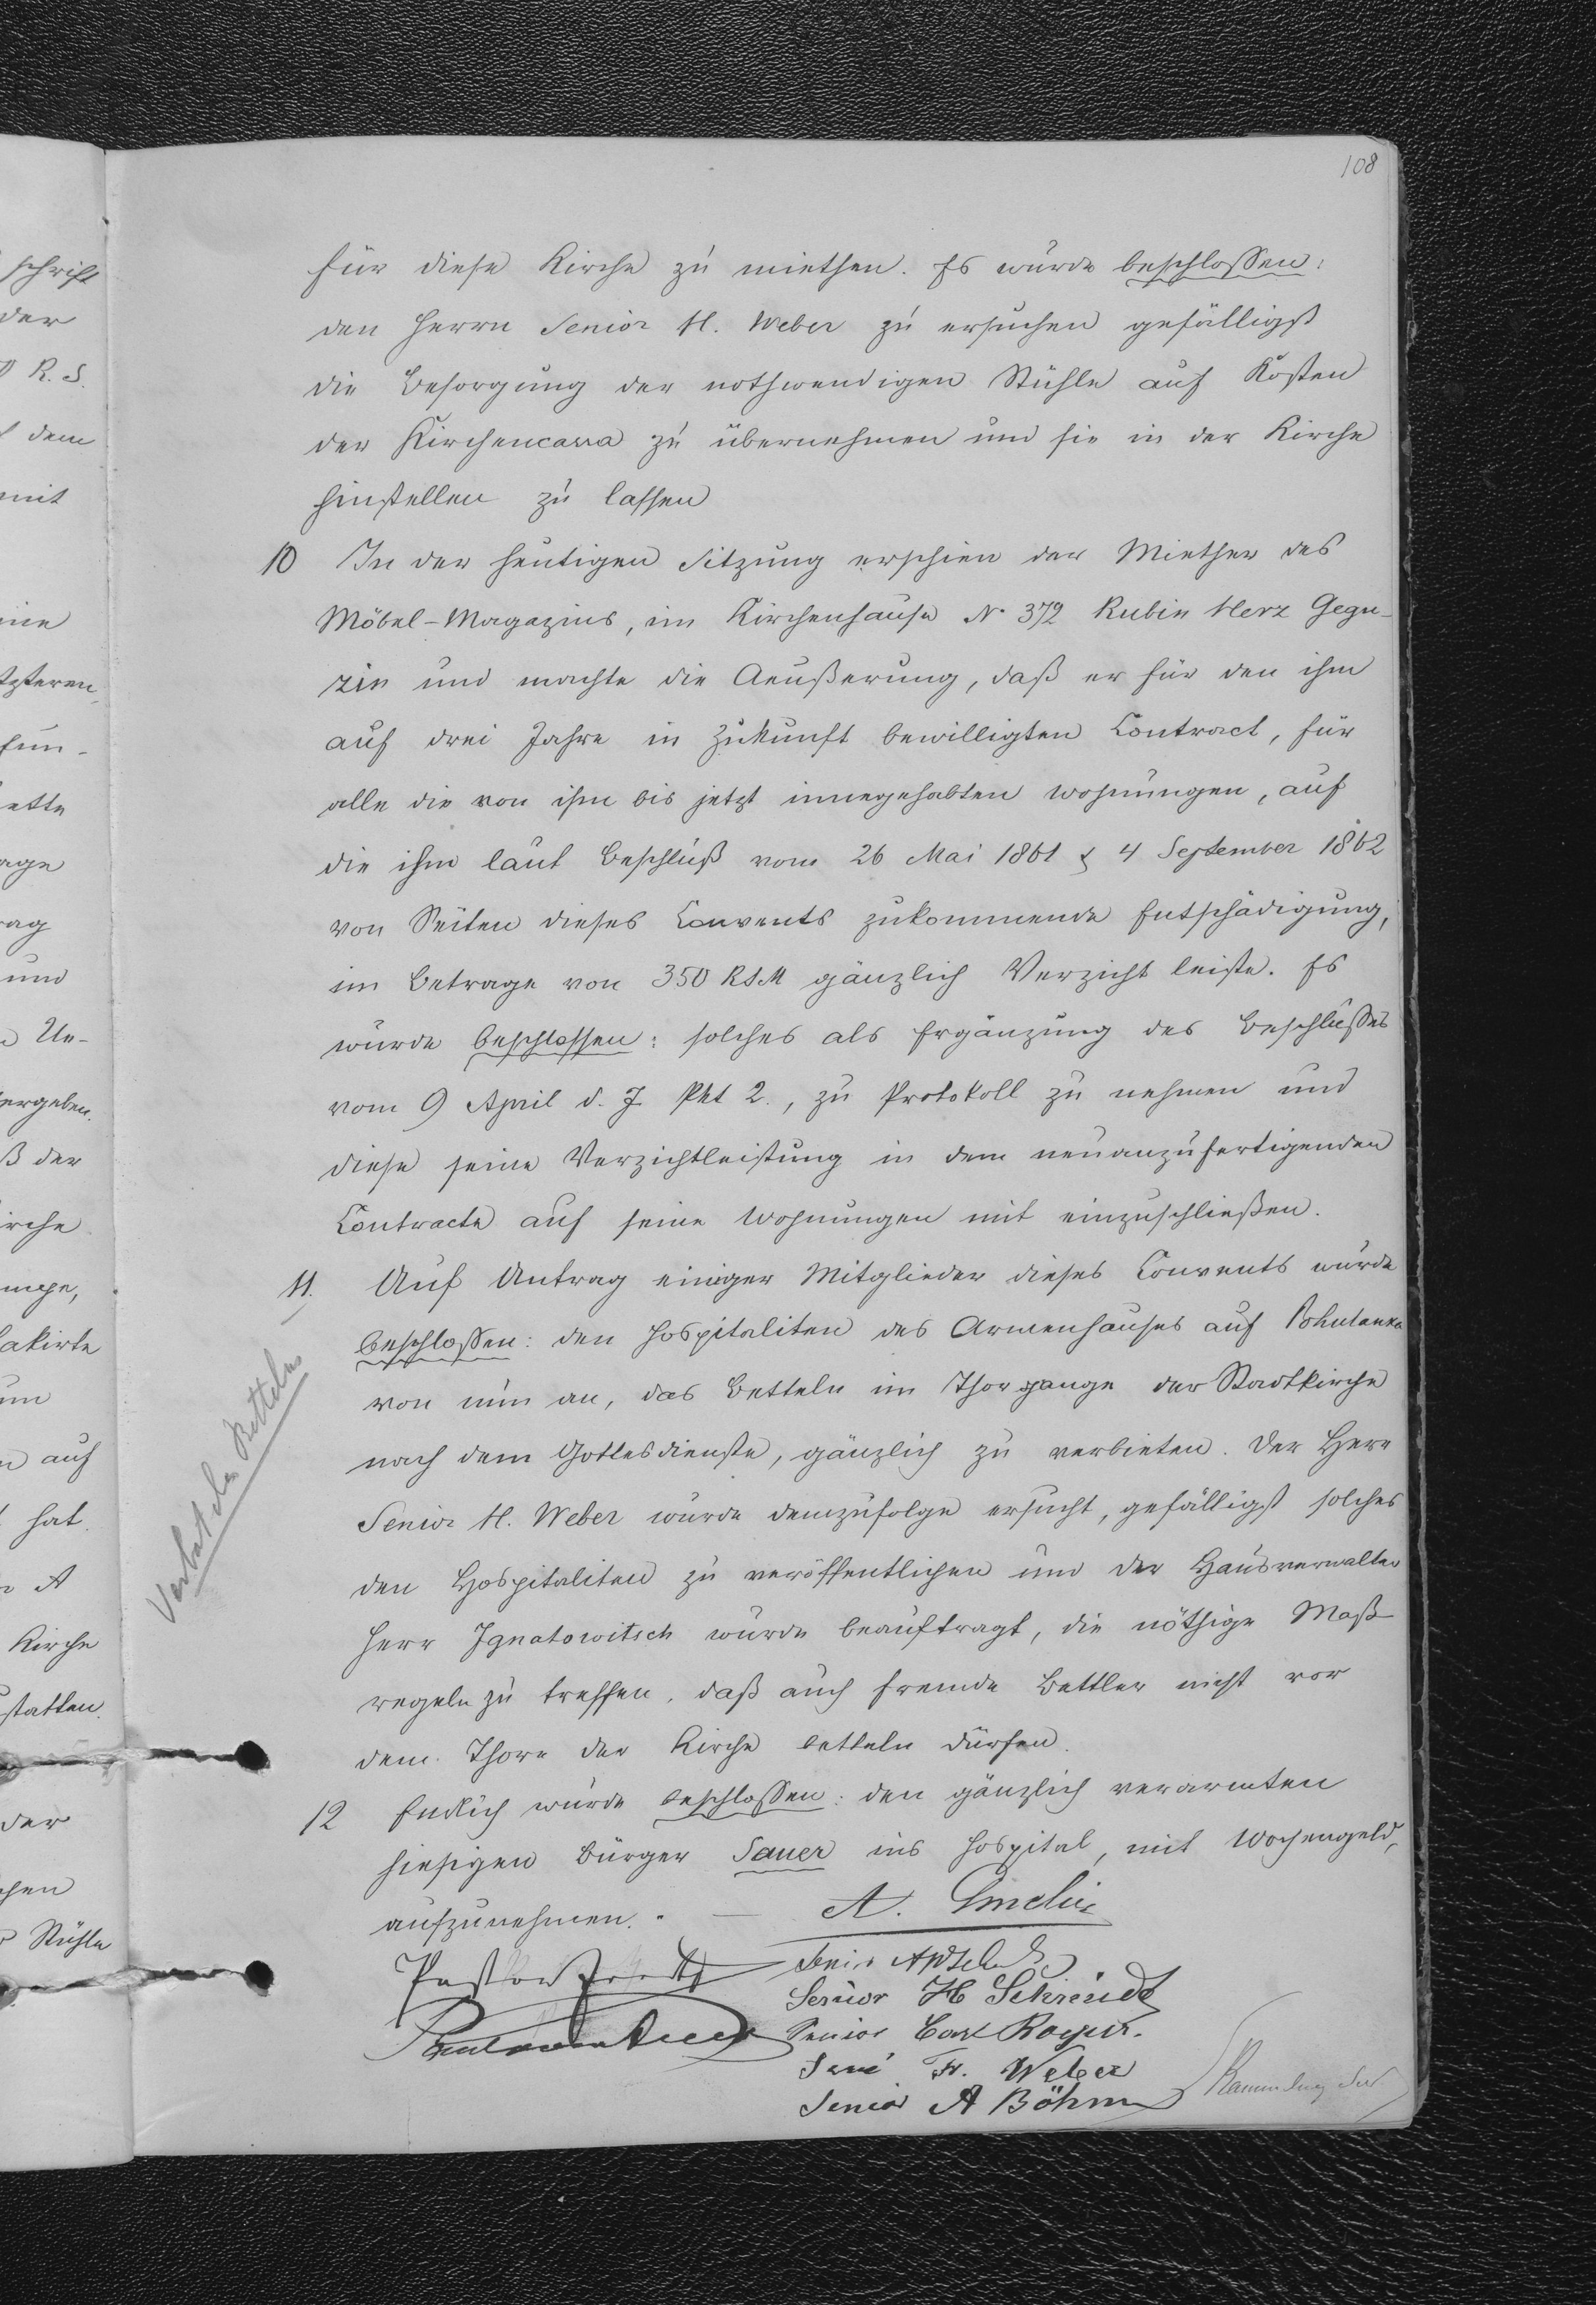 108
für diese Kirche zu miethen. Es wurde beschlossen:
den Herrn Senior H. Weber zu ersuchen gefälligst
die Besorgung der nothwendigen Stühle auf Kosten
der Kirchencassa zu übernehmen und sie in der Kirche
hinstellen zu lassen
10 In der heutigen Sitzung erschien der Miether des
Möbel-Magazins, im Kirchenhause N. 372 Rubin Herz Gegu-
zin und machte die Aeußerung, daß er für den ihm
auf drei Jahre in Zukunft bewilligten Contract, für
alle die von ihm bis jetzt innegehabten Wohnungen, auf
die ihm laut Beschluß vom 26 Mai 1861 & 4 September 1862
von Seiten dieses Convents zukommende Entschädigung,
im Betrage von 350 RSM gänzlich Verzicht leiste. Es
wurde beschlossen: solches als Ergänzung des Beschlußes
vom 9 April d. J. Pkt 2., zu Protokoll zu nehmen und
diese seine Verzichtleistung in dem neuanzufertigenden
Contracte auf seine Wohnungen mit einzuschließen.
11. Auf Antrag einiger Mitglieder dieses Convents wurde
beschlossen: den Hospitaliten des Armenhauses auf Pohulanka
von nun an, das Betteln im Thorgange der Stadtkirche
nach dem Gottesdienste, gänzlich zu verbieten. Der Herr
Senior H. Weber wurde demzufolge ersucht, gefälligst solches
den Hospitaliten zu veröffentlichen und der Hausverwalter
Herr Ignatowitsch wurde beauftragt, die nöthige Maß
regeln zu treffen, daß auch fremde Bettler nicht vor
dem Thore der Kirche betteln dürfen.
Verbot des Bettelns
12 Endlich wurde beschlossen: den gänzlich verarmten
hiesigen Bürger Sauer ins Hospital, mit Wochengeld,
aufzunehmen. —
A. Gmelin
Pastor
Senior
Senior H Schmidt
Senior Carl
Senior Fr. Weber
Senior A Böhm
schrift
der
R. S.
dem
mit
tzteren
fun-
age
rag
und
Un-
ergeben.
ß der
irche
akirte
um
auf
hat.
A
Kirche
statten.
der
Stühle